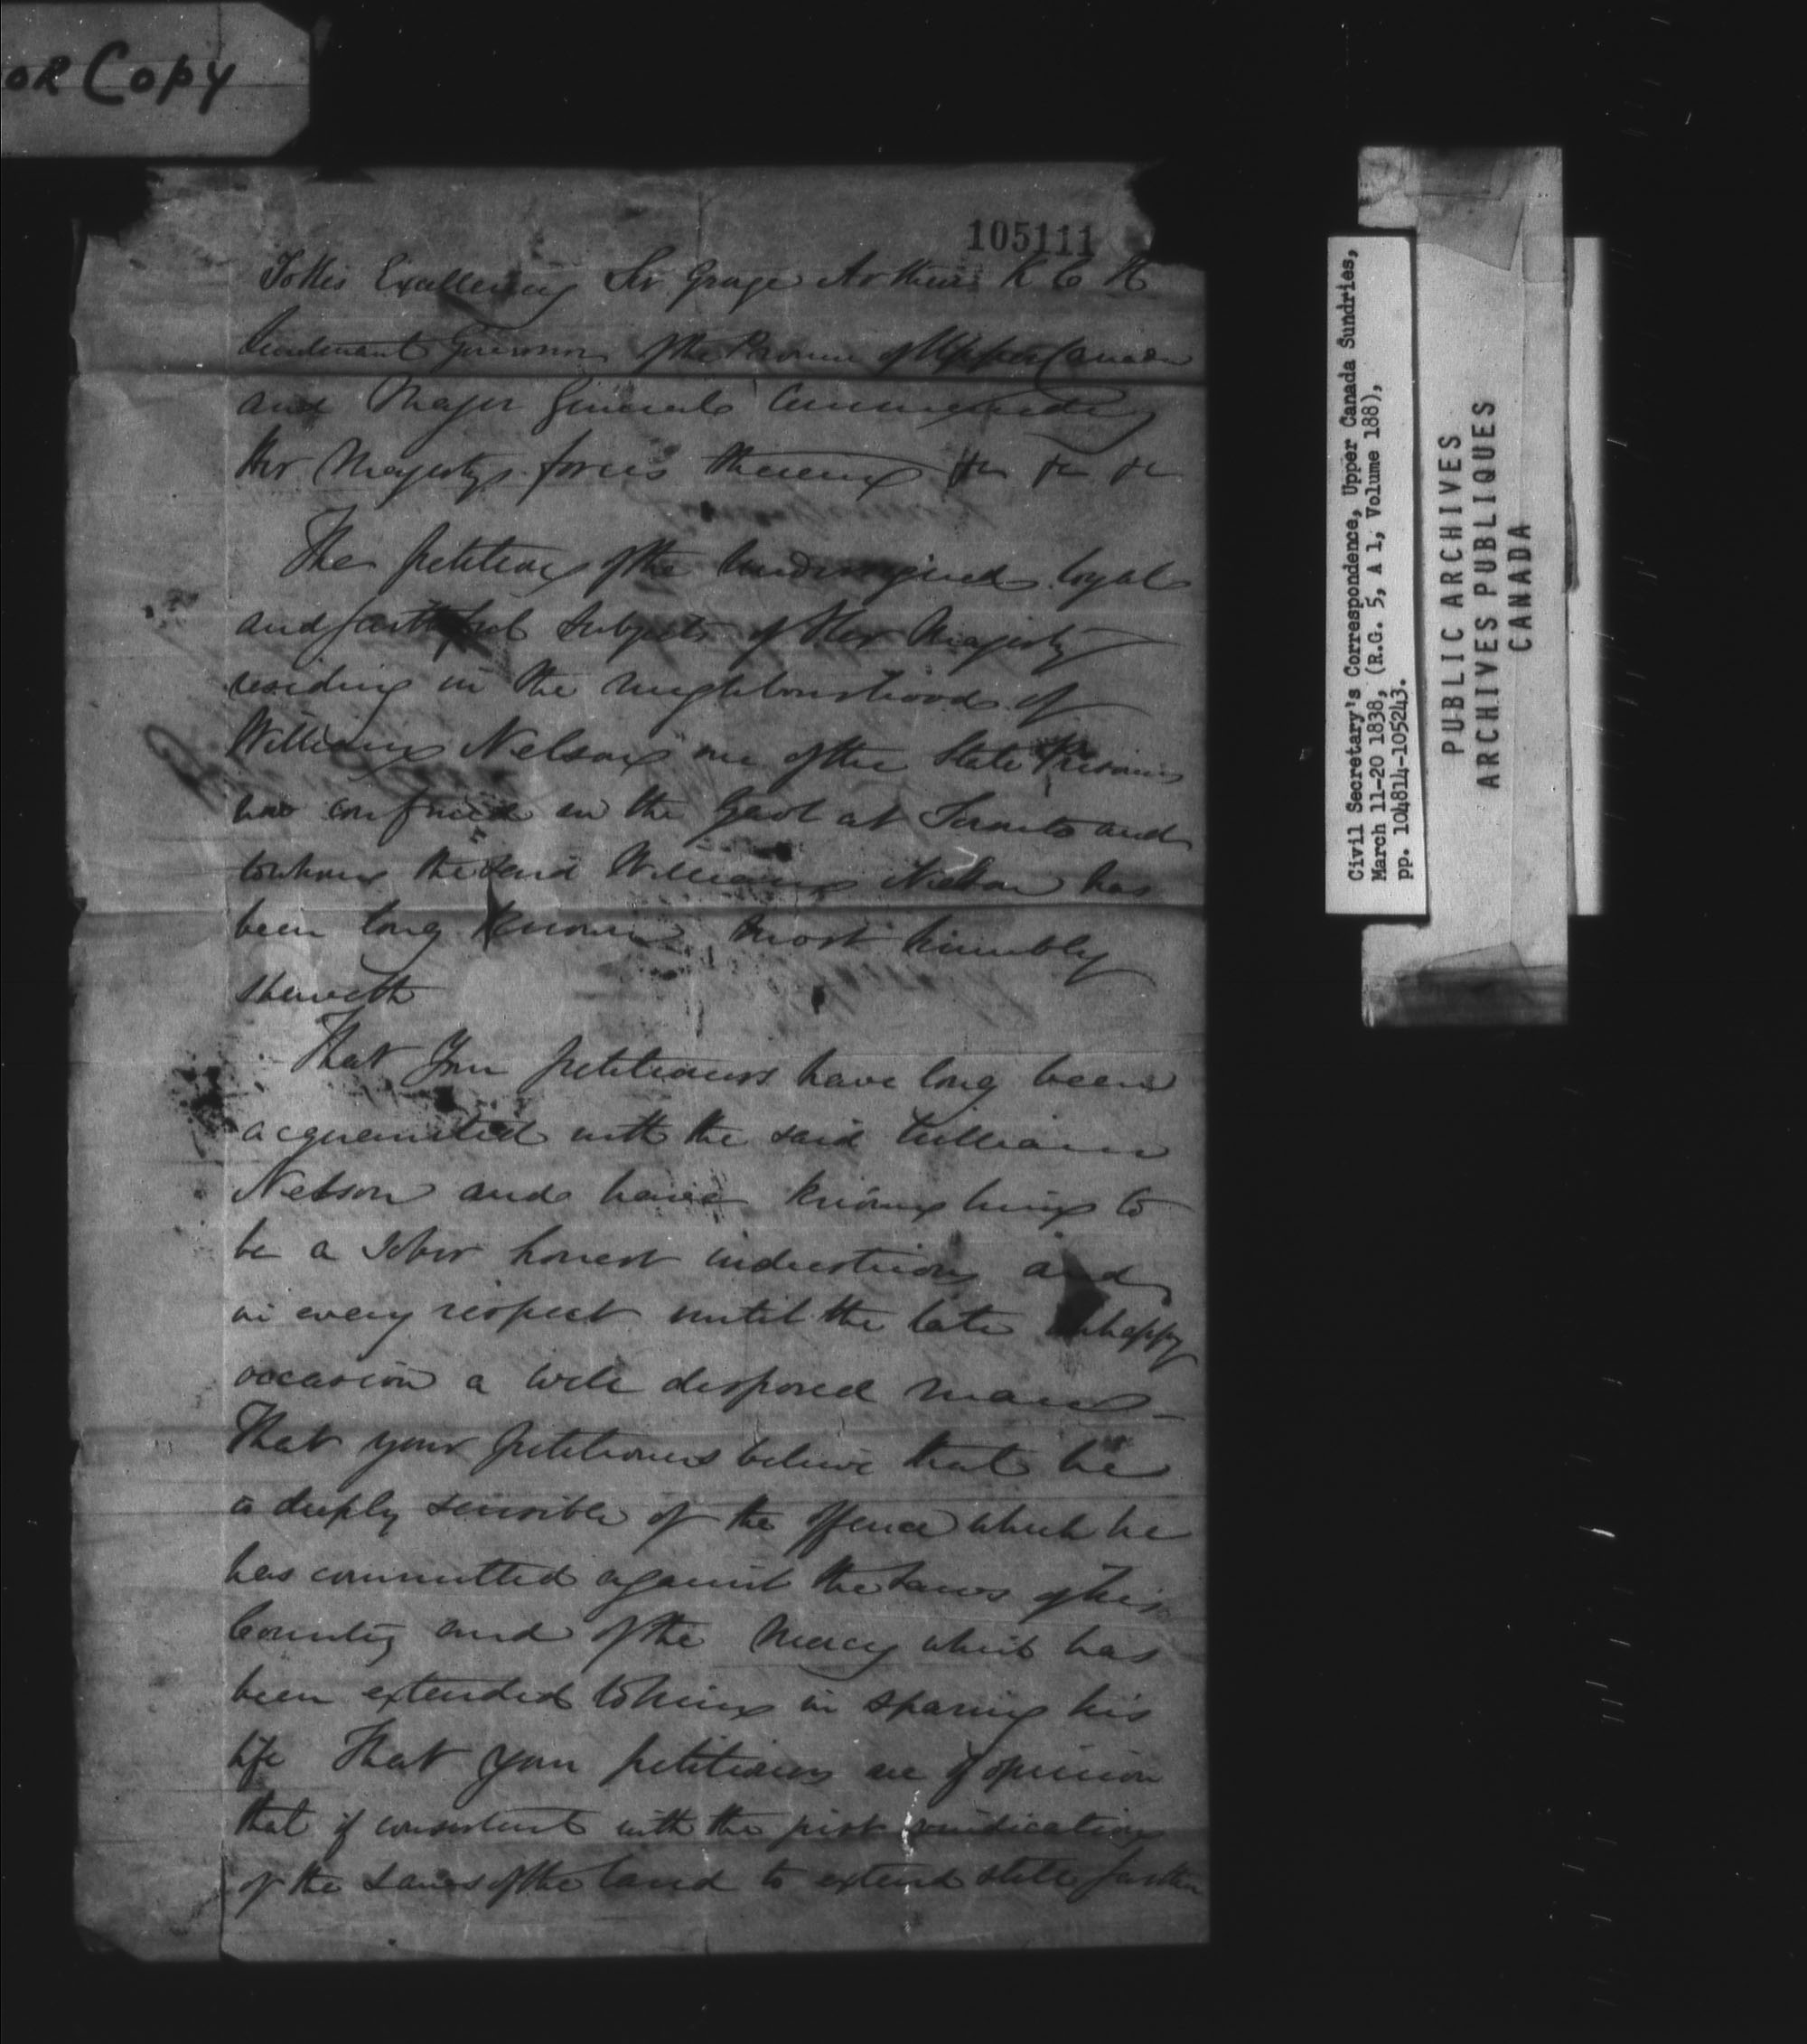 OR Copy
105111
To His Excellency Sir George Arthur K C H
Lieutenant Governor of the Province of Upper Canada
and Major General Commanding
Her Majestys forces therein &c &c &c
The petition of the Undersigned loyal
and faithful Subjects of Her Majesty
residing in the neighbourhood of
William Nelson one of the State Prisoners
now confined in the Gaol at Toronto and
to whom the said William Nelson has
been long known most humbly
sheweth
That Your petitioners have long been
acquainted with the said William
Nelson and have known him to
be a sober honest industrious and
in every respect until the late unhappy
occasion a well disposed man –
That your petitioners believe that he
is deeply sensible of the offence which he
has committed against the Laws of his
Country and of the Mercy which has
been extended to him in sparing his
life That your petitioners are of opinion
that if consistent with the just vindication
of the Laws of the land to extend still further
Civil Secretary's Correspondence, Upper Canada Sundries,
March 11-20 1838, (R.G. 5, A 1, Volume 188),
pp. 104814-105243.
PUBLIC ARCHIVES
ARCHIVES PUBLIQUES
CANADA